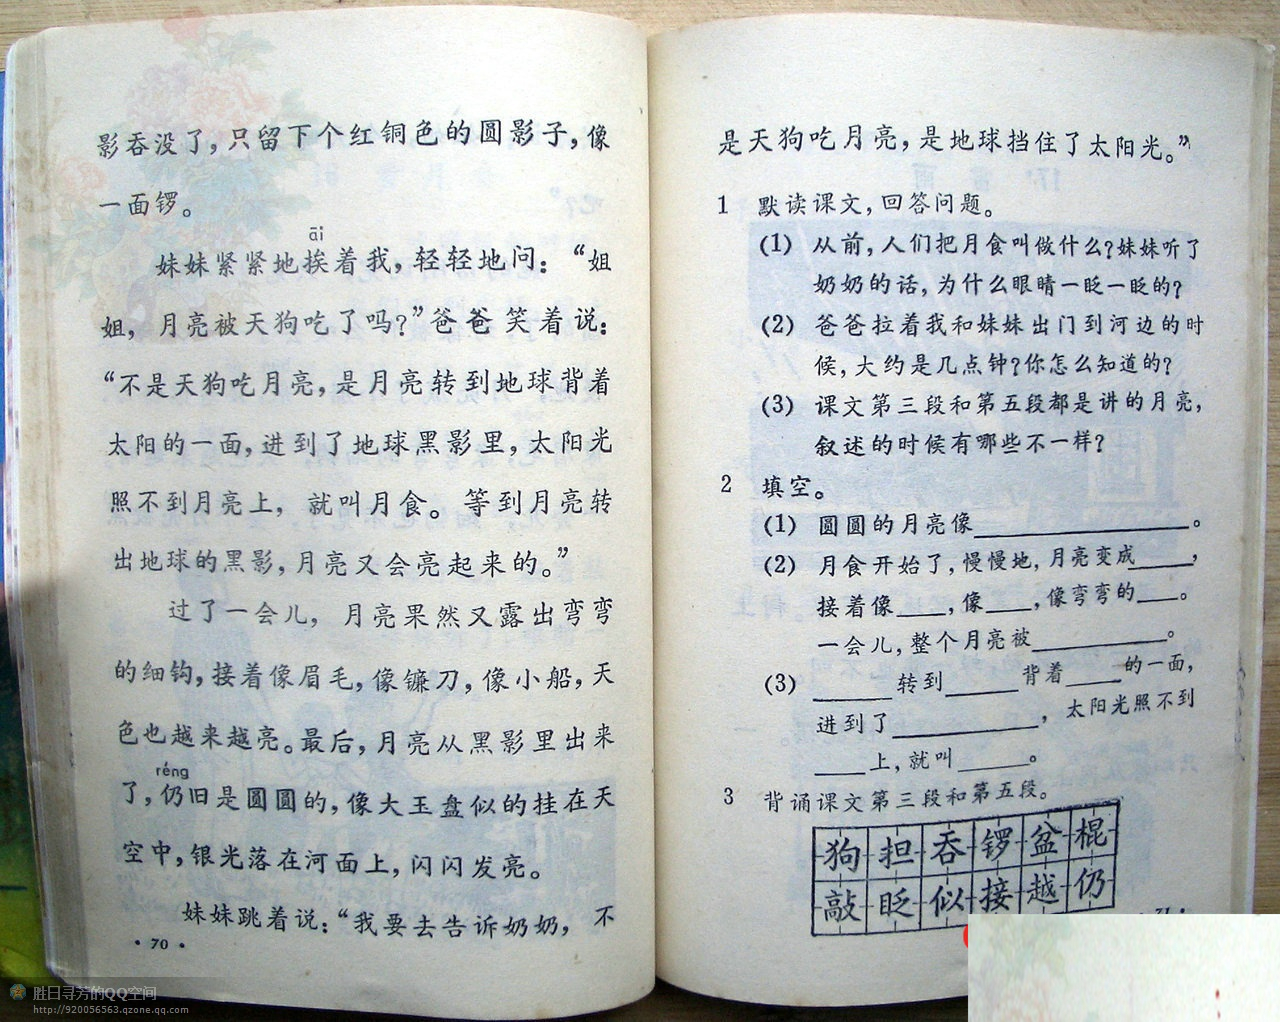 影吞没了，只留下个红铜色的圆影子，像
一面锣。
āi
妹妹紧紧地挨着我，轻轻地问：“姐
姐，月亮被天狗吃了吗？”爸爸笑着说：
“不是天狗吃月亮，是月亮转到地球背着
太阳的一面，进到了地球黑影里，太阳光
照不到月亮上，就叫月食。等到月亮转
出地球的黑影，月亮又会亮起来的。”
过了一会儿，月亮果然又露出弯弯
的细钩，接着像眉毛，像镰刀，像小船，天
色也越来越亮。最后，月亮从黑影里出来
réng
了，仍旧是圆圆的，像大玉盘似的挂在天
空中，银光落在河面上，闪闪发亮。
妹妹跳着说：“我要去告诉奶奶，不
·70·
是天狗吃月亮，是地球挡住了太阳光。”
1 默读课文，回答问题。
(1) 从前，人们把月食叫做什么？妹妹听了
奶奶的话，为什么眼睛一眨一眨的？
(2) 爸爸拉着我和妹妹出门到河边的时
候，大约是几点钟？你怎么知道的？
(3) 课文第三段和第五段都是讲的月亮，
叙述的时候有哪些不一样？
2 填空。
(1) 圆圆的月亮像________。
(2) 月食开始了，慢慢地，月亮变成____，
接着像____，像____，像弯弯的____。
一会儿，整个月亮被________。
(3) ____转到____背着____的一面，
进到了________，太阳光照不到
____上，就叫____。
3 背诵课文第三段和第五段。
狗担吞锣盆棍
敲眨似接越仍
胜日寻芳的QQ空间
http://920056563.qzone.qq.com